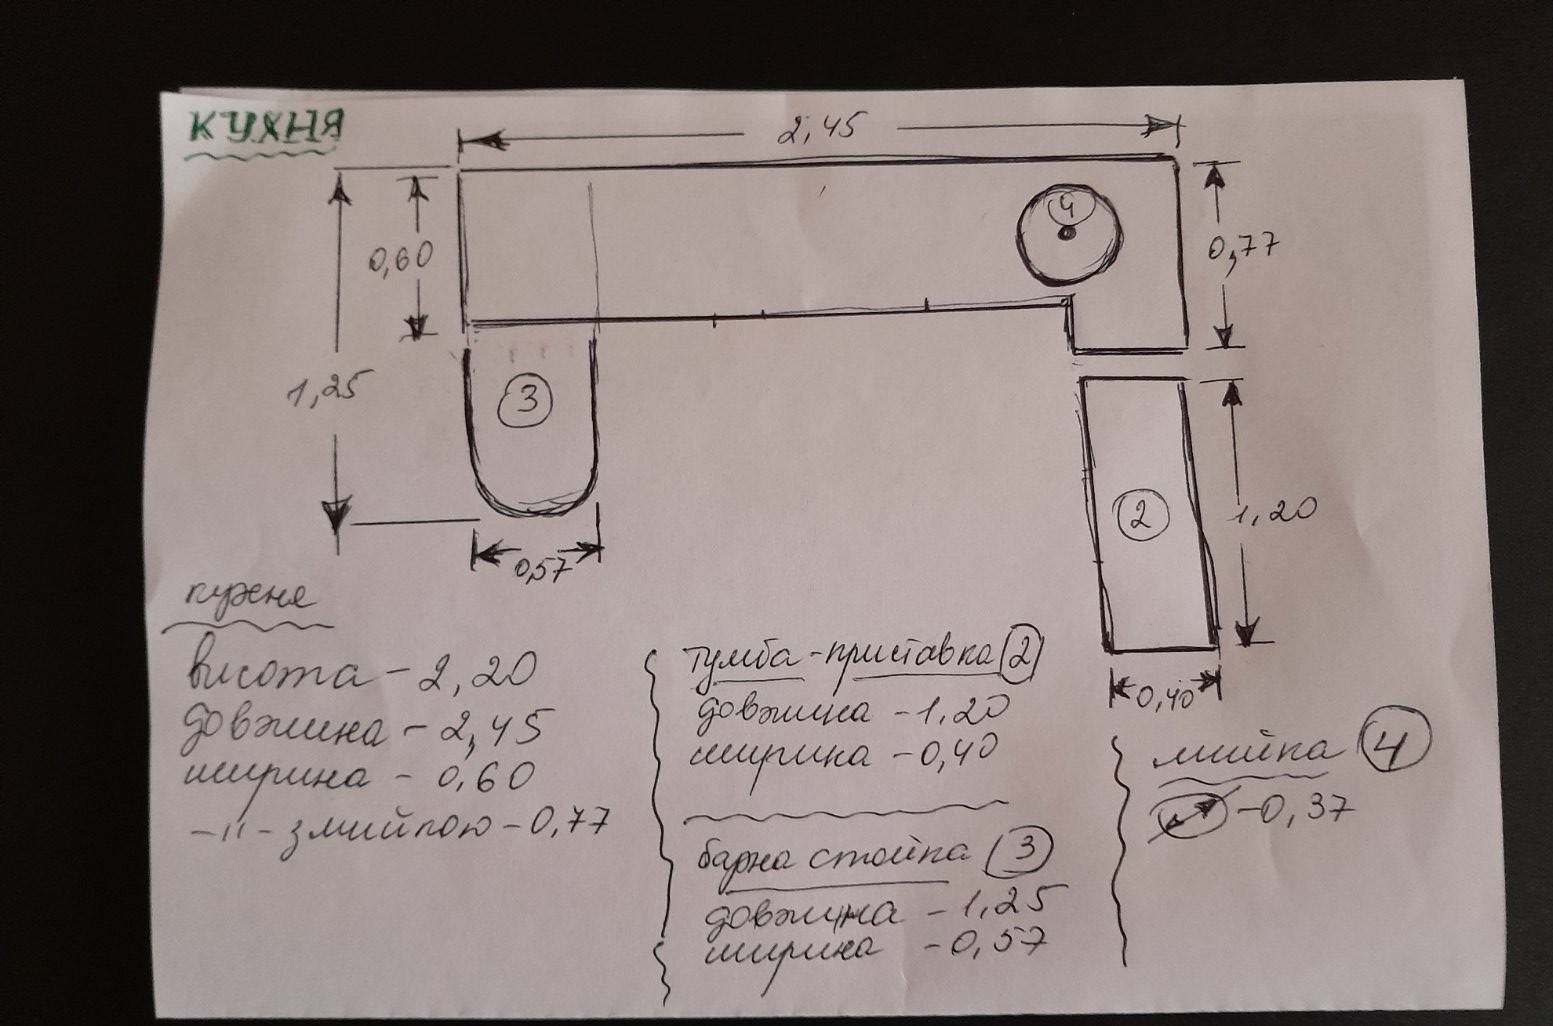 КУХНЯ
2,45
0,60
4
0,77
1,25
3
2
1,20
0,57
0,40
кухня
висота - 2,20
довжина - 2,45
ширина - 0,60
-"- з мийкою - 0,77
тумба-приставка 2
довжина - 1,20
ширина - 0,40
барна стойка 3
довжина - 1,25
ширина - 0,57
мийка 4
- 0,37